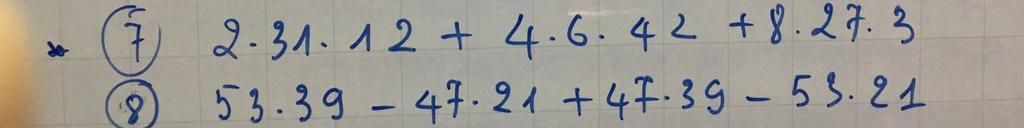 * 7 2.31.12 + 4.6.42 + 8.27.3
8 53.39 - 47.21 + 47.39 - 53.21